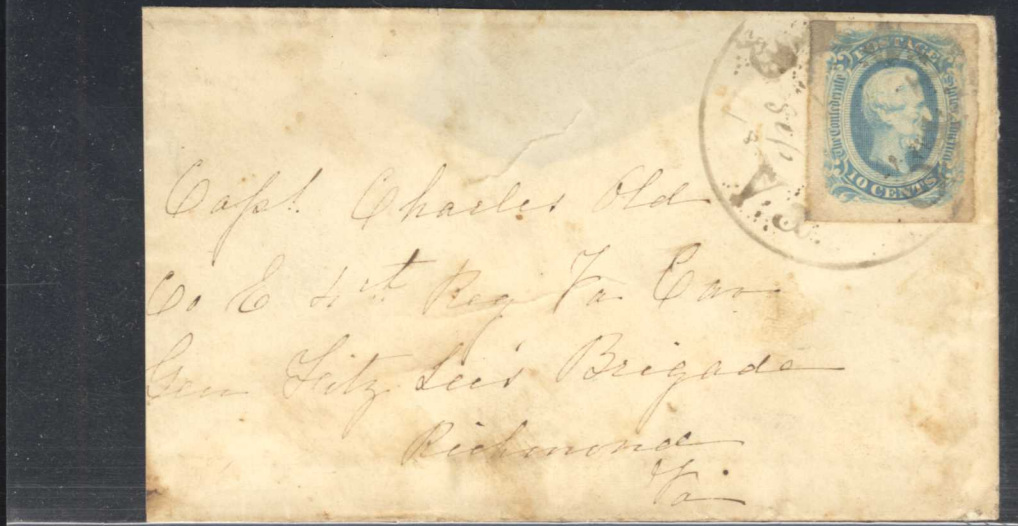 POSTAGE
The Confederate States of America
10 CENTS
Capt. Charles Old
Co E 4th Reg Va Cav
Gen Fitz Lee's Brigade
Richmond
Va.